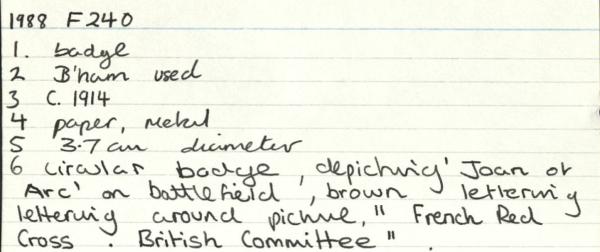 1988 F240
1. badge
2 B'ham used
3 C. 1914
4 paper, metal
5 3.7 cm diameter
6 circular badge, depicting 'Joan of
Arc' on battlefield, brown lettering
lettering around picture, " French Red
Cross . British Committee " .